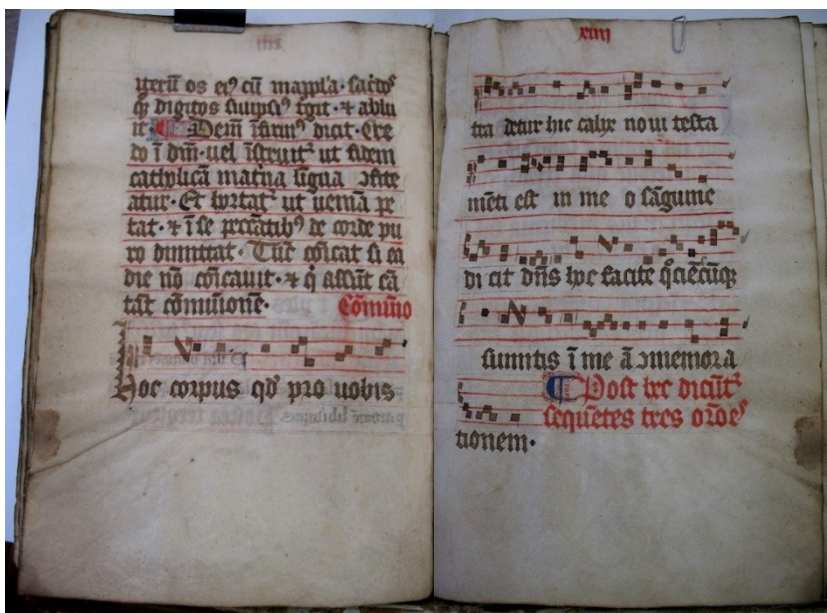 uerū os eiꝰ cū mappla· sacdoˢ
qꝫ digitos suiipsiꝰ tgit· ⁊ ablu
it· ¶ Deīn īfirmꝰ dicit· Cre
do ī dm̄· uel īstruit᷑ ut fidem
catholicā mat̄na ligua ↄfite
atur· Et hortat᷑ ut ueniā pe
tat· ⁊ īse peccātibꝰ de corde pu
ro dimittat· Tūc cōīcat si ea
die nō cōīcauit· ⁊ q̇ assūt cā
tāt cōmunionē· Cōmunio
Hoc corpus qd̄ pro uobis
xiiij
tra detur hic calyx noui testa
mēti est in me o sāguine
di cit dn̄s hoc facite qͦciēcūqꝫ
sumitis ī me ā ↄmemora
¶ Post hec dicūt᷑
sequētes tres ordēˢ
tionem·